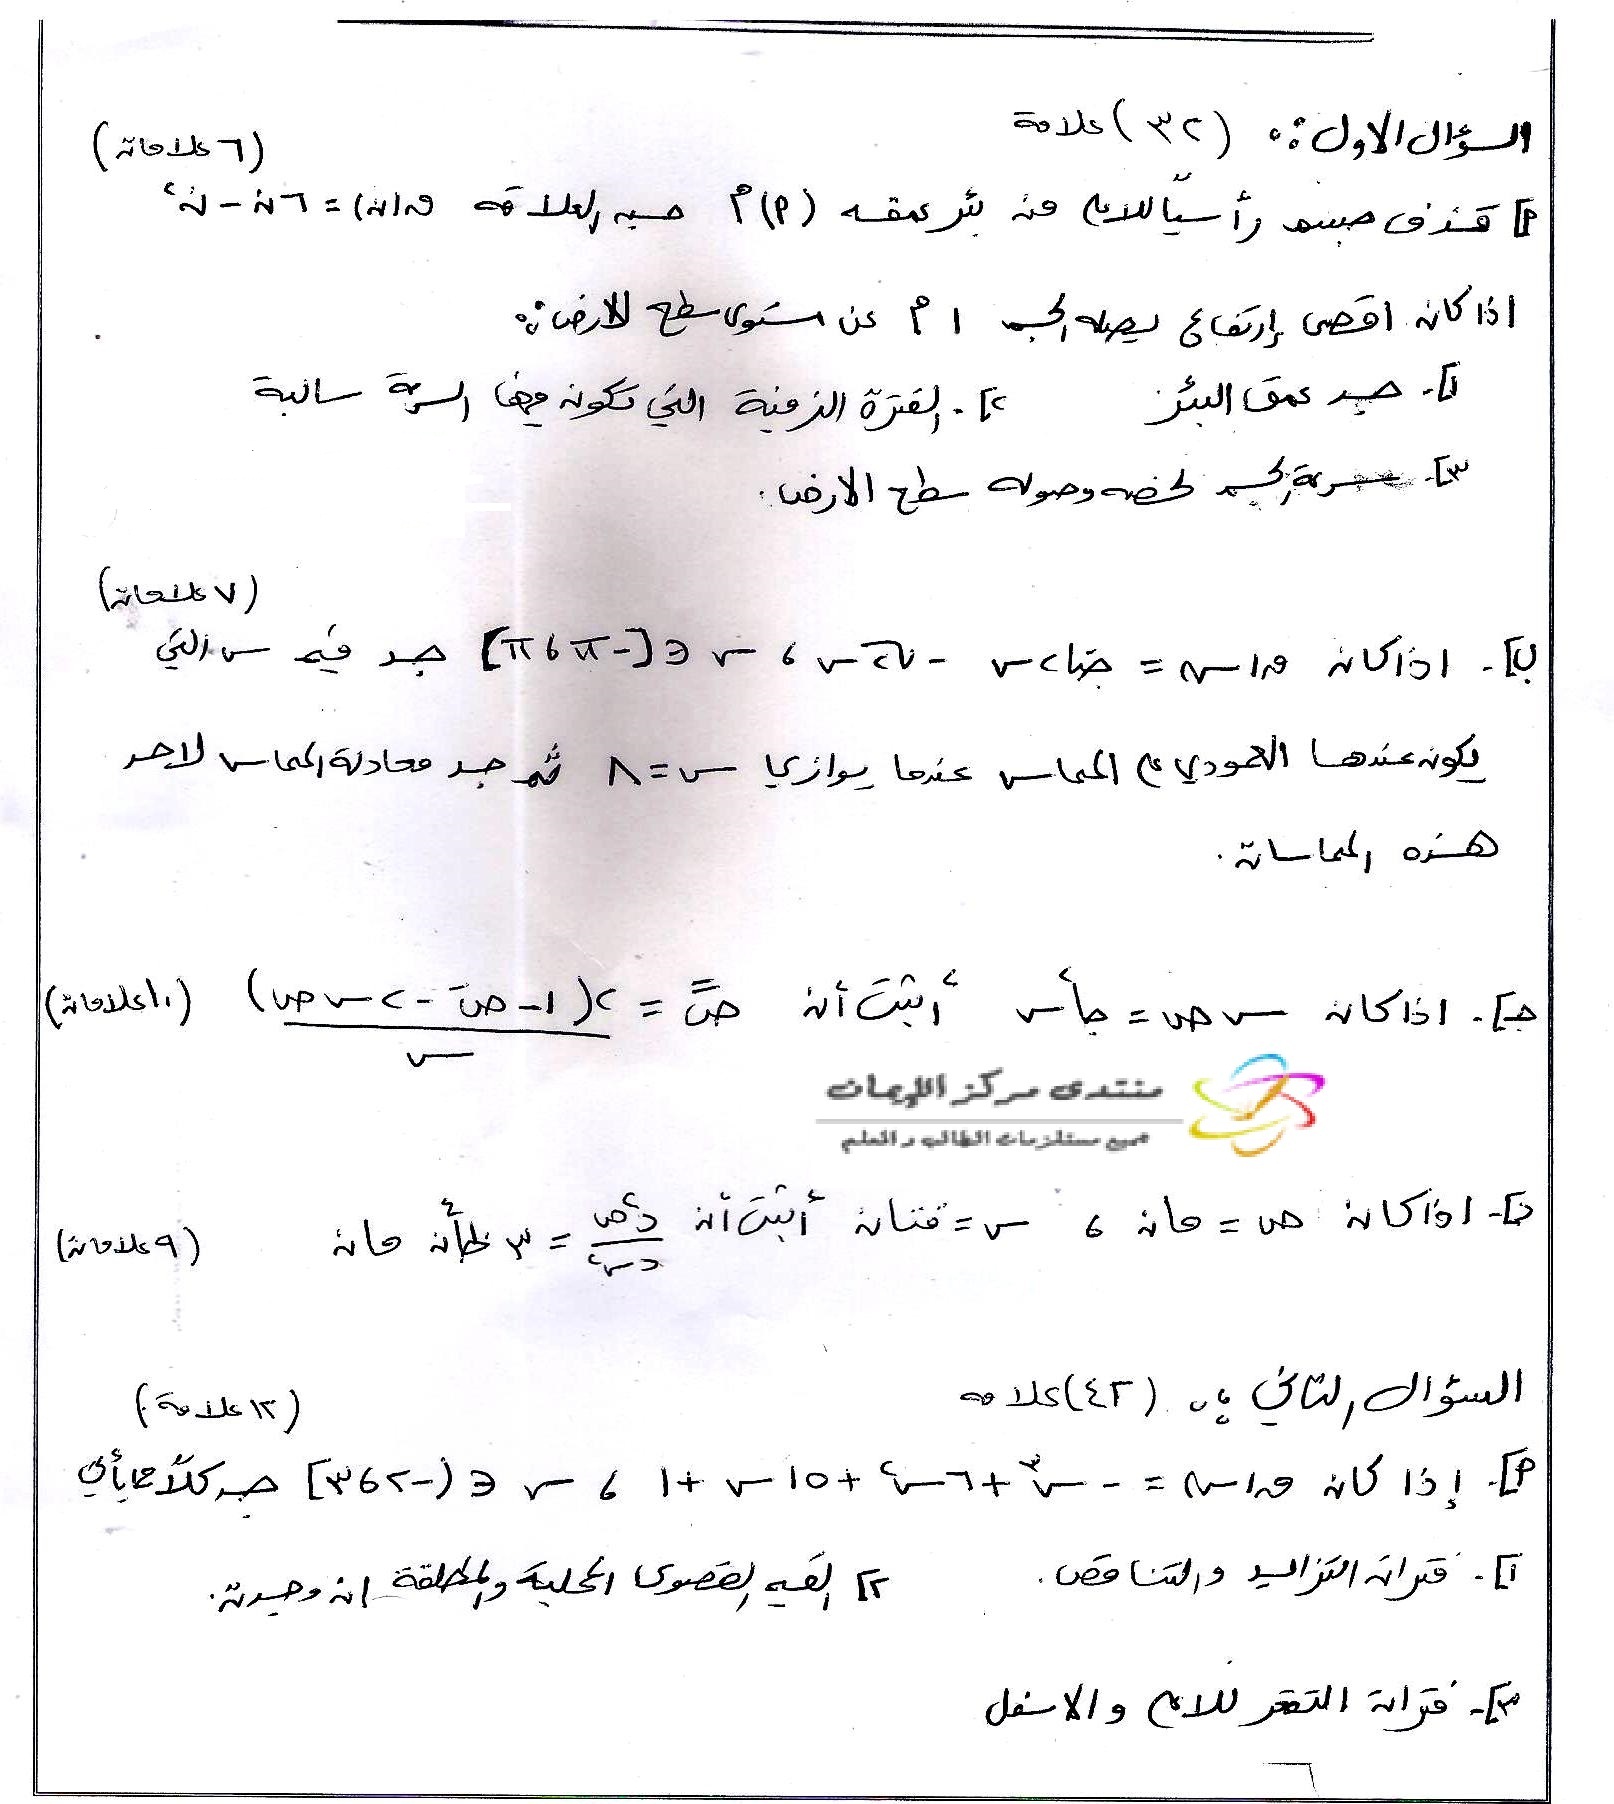 السؤال الاول :. (٣٢) علامة
(٦ علامات)
أ] قذف جسم رأسياً للاعلى من بئر عمقه (أ) م حسب العلاقة ف(ن) = ٦ن - ن٢
اذا كان اقصى إرتفاع يصله الجسم ١ م عن مستوى سطح الارض :.
١]. جد عمق البئر ٢]. الفترة الزمنية التي تكون فيها السرعة سالبة
٣]. سرعة الجسم لحضه وصوله سطح الارض.
(٧ علامات)
ب]. اذا كان ق(س) = جتا٢س - √٢ س ، س ∈ [-π ، π] جد قيم س التي
يكون عندها العمودي على المماس عندما يوازي س = ٨ ثم جد معادلة المماس لاحد
هذه المماسات.
ج]. اذا كان س ص = جا٢س أثبت أن ص َ َ = ٢(١ - صَ - ٢ س ص) / س (١٠ علامات)
منتدى مركز الإيمان
جميع مستلزمات الطالب والمعلم
د]. اذا كان ص = هان ، س = قتان أثبت أن د٢ص / دس٢ = ٣ ظا٤ن هان (٩ علامات)
السؤال الثاني :. (٤٢) علامه
(١٢ علامة)
أ]. إذا كان ق(س) = - س٣ + ٦س٢ + ١٥س + ١ ، س ∈ (-٢ ، ٣] جد كلاً مما يأتي
١]. فترات التزايد والتناقص. ٢] القيم القصوى المحلية والمطلقة ان وجدت.
٣]. فترات التقعر للاعلى والاسفل